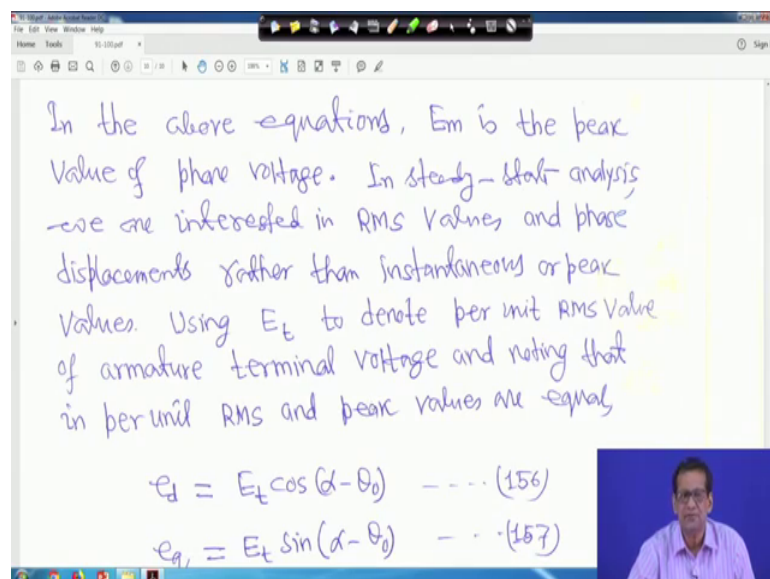 91-100.pdf - Adobe Acrobat Reader DC
File Edit View Window Help
Home Tools 91-100.pdf × Sign
In the above equations, Em is the peak
value of phase voltage. In steady-state analysis,
we are interested in RMS values and phase
displacements rather than instantaneous or peak
values. Using Et to denote per unit RMS value
of armature terminal voltage and noting that
in per unit RMS and peak values are equal,
ed = Et cos(α - θ0) ---- (156)
eq = Et sin(α - θ0) --- (157)